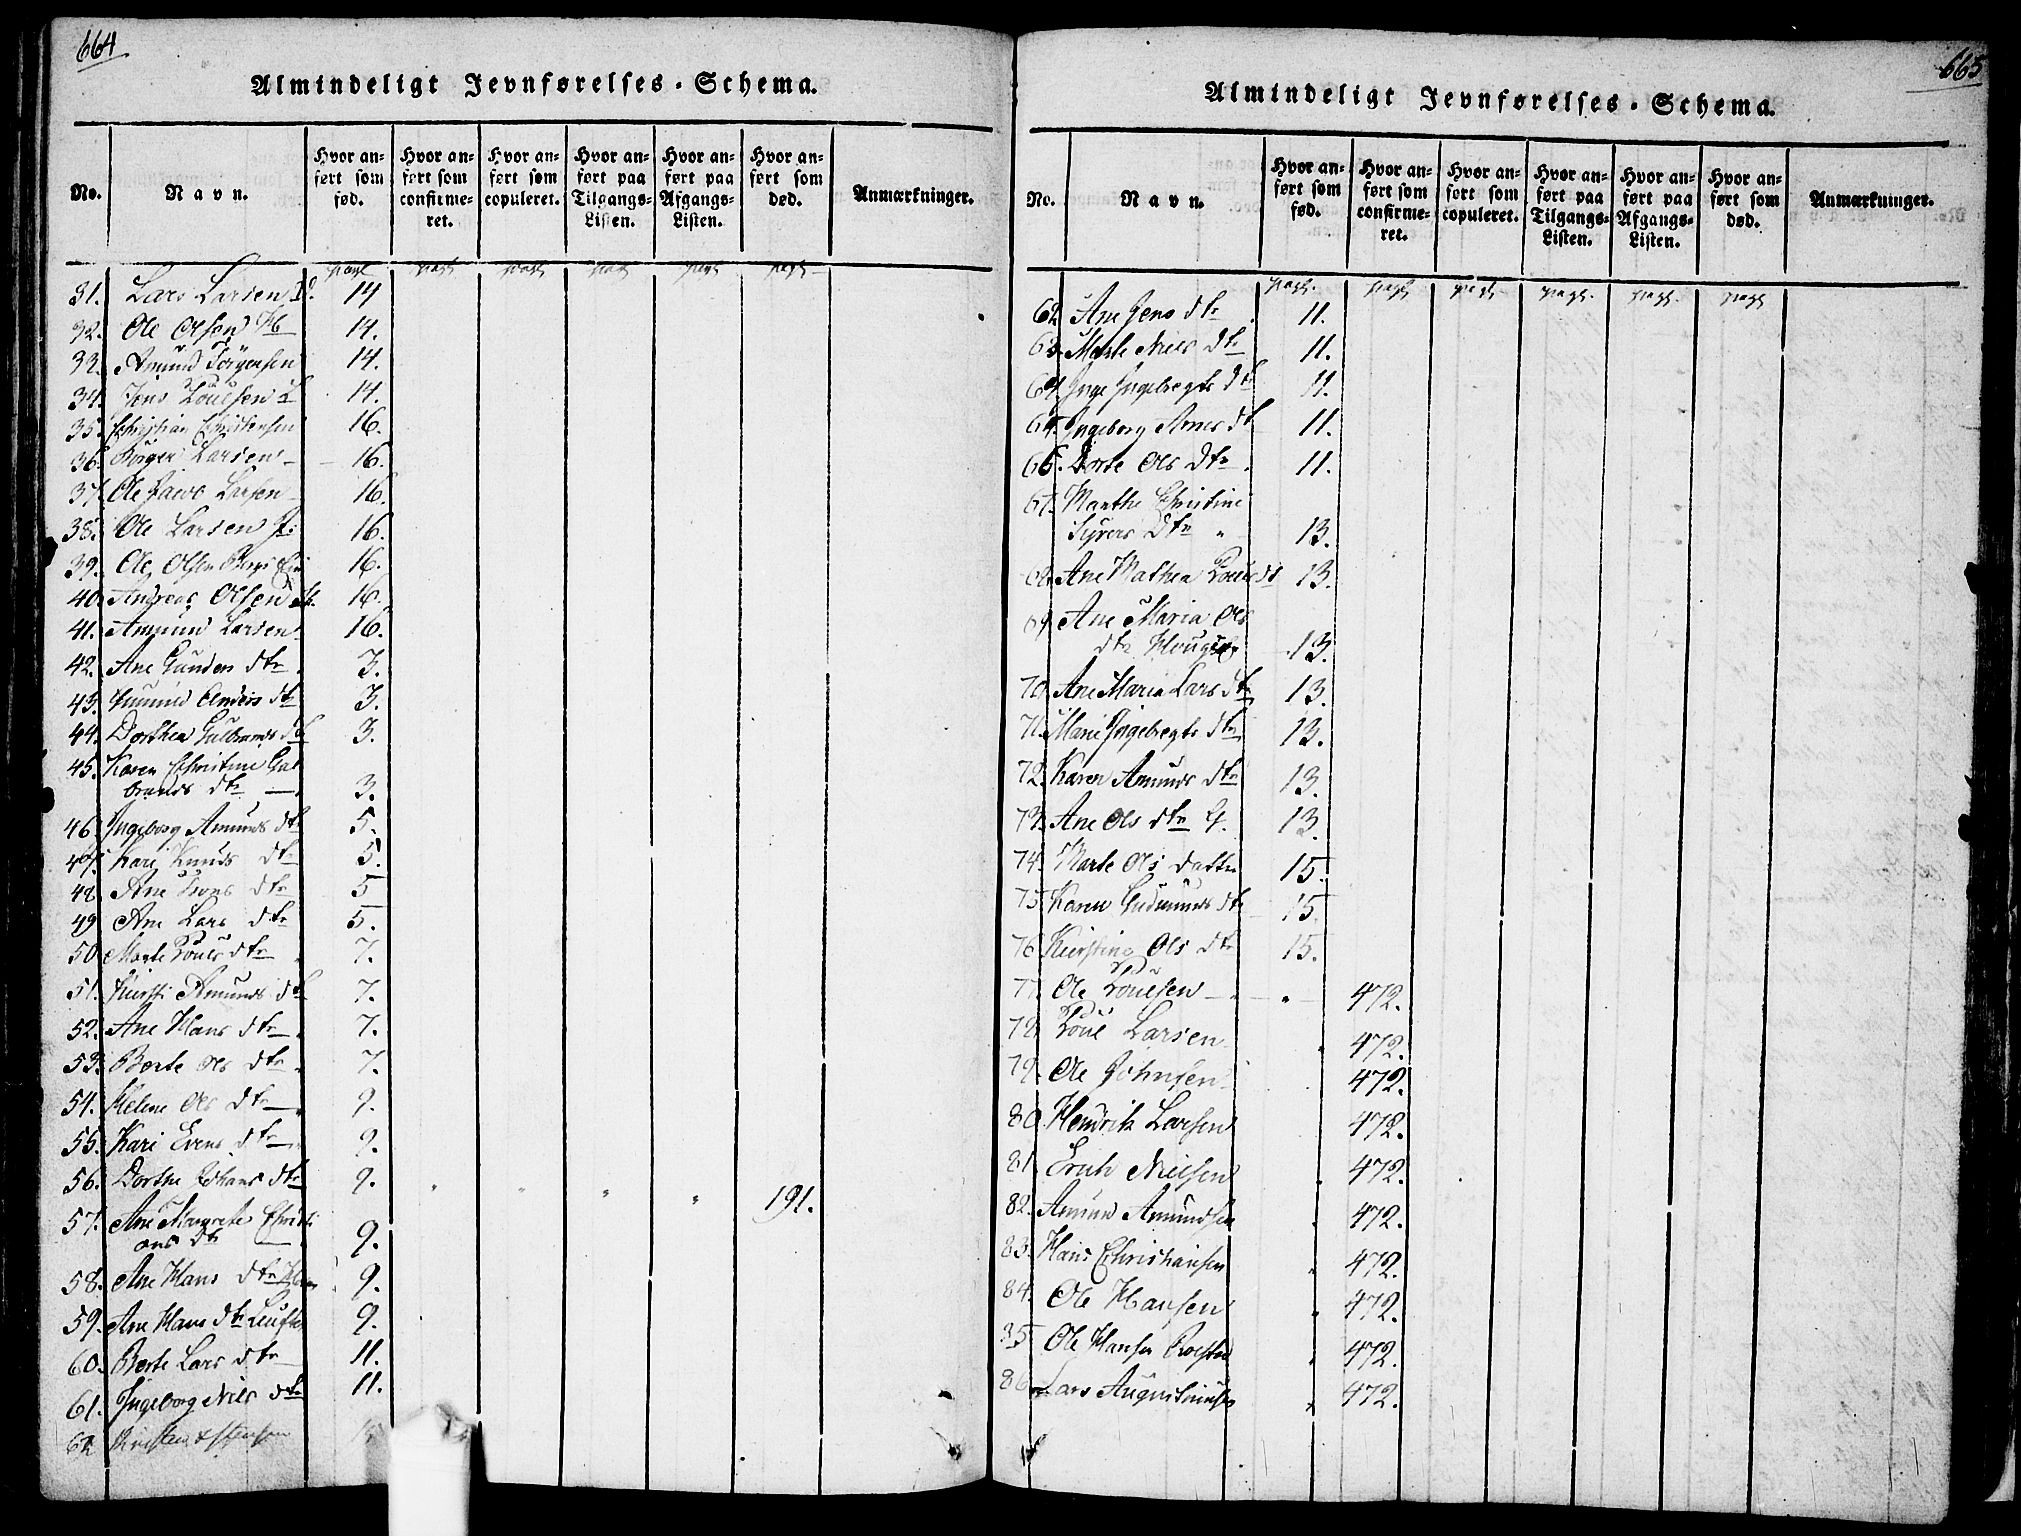 664
Almindeligt Jevnførelses-Schema.
No. Navn. Hvor anført som fød. Hvor anført som confirmeret. Hvor anført som copuleret. Hvor anført paa Tilgangs-Listen. Hvor anført paa Afgangs-Listen. Hvor anført som død. Anmærkninger.
pag. pag. pag. pag. pag. pag.
31. Lars Larsen 14
32. Ole Olsen 14.
33. Amund Jørgensen 14.
34. Jens Poulsen 14.
35. Christian Christensen 16.
36. Børger Larsen 16.
37. Ole Jacob Larsen 16.
38. Ole Larsen 16.
39. Ole Olsen 16.
40. Andreas Olsen 16.
41. Amund Larsen 16.
42. Ane Gunders dtr 3.
43. Gunnild Anders dtr 3.
44. Dorthea Gulbrands dtr 3.
45. Karen Christine Gul
brands dtr 3.
46. Ingeborg Amunds dtr 5.
47. Kari Knuds dtr 5.
48. Ane dtr 5
49 Ane Lars dtr 5.
50 Marte Pouls dtr 7.
51. Kirsti Amunds dtr 7.
52. Ane Hans dtr 7.
53. Berte Ols dtr 7.
54. Helene Ols dtr 9.
55. Kari Evens dtr 9.
56. Dorthe Johans dtr 9.
57. Ane Margrete Christi
ans dtr 9. " " " " 191.
58. Ane Hans dtr 9.
59. Ane Hans dtr 9.
60. Berte Lars dtr 11.
61. Ingeborg Niels dtr 11.
62
665
Almindeligt Jevnførelses-Schema.
No. Navn. Hvor anført som fød. Hvor anført som confirmeret. Hvor anført som copuleret. Hvor anført paa Tilgangs-Listen. Hvor anført paa Afgangs-Listen. Hvor anført som død. Anmærkninger.
pag. pag. pag. pag. pag. pag.
62. Ane Jens dtr 11.
63. Marte Niels Dtr 11.
64. Inge Ingebregts dtr 11.
65. Ingeborg Arnes dtr 11.
66. Dorte Ols Dtr 11.
67. Marthe Christine
Syvers Dtr " 13.
68. Ane Mathea Pouls dtr 13.
69. Ane Maria Ols
dtr 13.
70. Ane Maria Lars dtr 13.
71. Marie Ingebregts dtr 13.
72. Karen Amunds dtr 13.
73. Ane Ols dtr 13.
74. Marte Ols datter 15.
75. Karen Gudmunds dtr 15.
76 Kirstine Ols dtr 15.
77. Ole Poulsen " 472.
78. Poul Larsen 472.
79. Ole Johnsen 472.
80. Hendrik Larsen 472.
81. Erich Nielsen 472.
82. Amund Amundsen 472.
83. Hans Christiansen 472.
84. Ole Hansen 472.
85 Ole Hansen 472.
86 Lars Augustinusen 472.